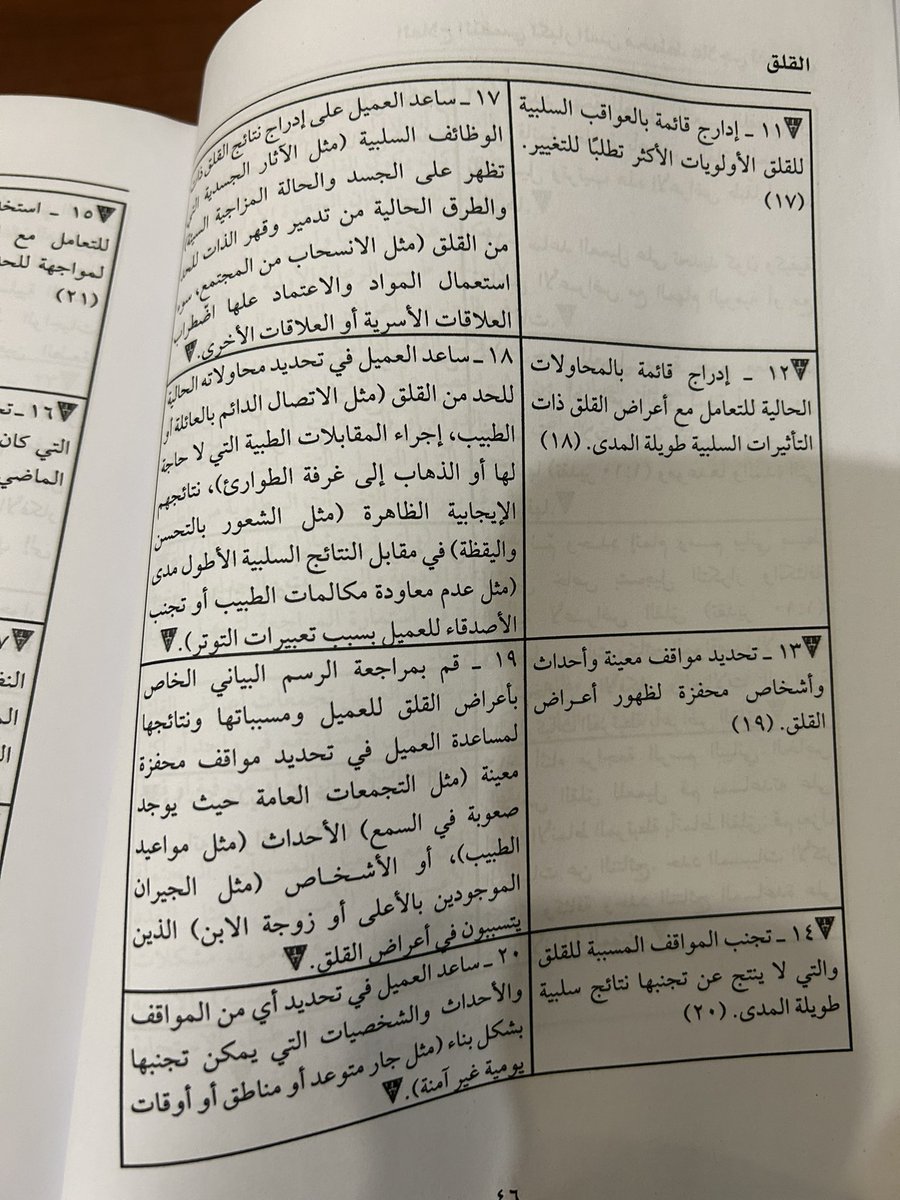 القلق
١١ ـ إدارج قائمة بالعواقب السلبية
للقلق الأولويات الأكثر تطلبًا للتغيير.
(١٧)
١٧ ـ ساعد العميل على إدراج نتائج القلق
الوظائف السلبية (مثل الآثار الجسدية
تظهر على الجسد والحالة المزاجية
والطرق الحالية من تدمير وقهر الذات
من القلق (مثل الانسحاب من المجتمع،
استعمال المواد والاعتماد علها اضطراب
العلاقات الأسرية أو العلاقات الأخرى.
١٢ ـ إدراج قائمة بالمحاولات
الحالية للتعامل مع أعراض القلق ذات
التأثيرات السلبية طويلة المدى. (١٨)
١٨ ـ ساعد العميل في تحديد محاولاته الحالية
للحد من القلق (مثل الاتصال الدائم بالعائلة أو
الطبيب، إجراء المقابلات الطبية التي لا حاجة
لها أو الذهاب إلى غرفة الطوارئ)، نتائجهم
الإيجابية الظاهرة (مثل الشعور بالتحسن
واليقظة) في مقابل النتائج السلبية الأطول مدى
(مثل عدم معاودة مكالمات الطبيب أو تجنب
الأصدقاء للعميل بسبب تعبيرات التوتر).
١٣ ـ تحديد مواقف معينة وأحداث
وأشخاص محفزة لظهور أعراض
القلق. (١٩)
١٩ ـ قم بمراجعة الرسم البياني الخاص
بأعراض القلق للعميل ومسبباتها ونتائجها
لمساعدة العميل في تحديد مواقف محفزة
معينة (مثل التجمعات العامة حيث يوجد
صعوبة في السمع) الأحداث (مثل مواعيد
الطبيب)، أو الأشخاص (مثل الجيران
الموجودين بالأعلى أو زوجة الابن) الذين
يتسببون في أعراض القلق.
١٤ ـ تجنب المواقف المسببة للقلق
والتي لا ينتج عن تجنبها نتائج سلبية
طويلة المدى. (٢٠)
٢٠ ـ ساعد العميل في تحديد أي من المواقف
والأحداث والشخصيات التي يمكن تجنبها
بشكل بناء (مثل جار متوعد أو مناطق أو أوقات
يومية غير آمنة).
٤٦
١٥ ـ
للتعامل مع
لمواجهة
(٢١)
١٦ ـ
التي كان
الماضي